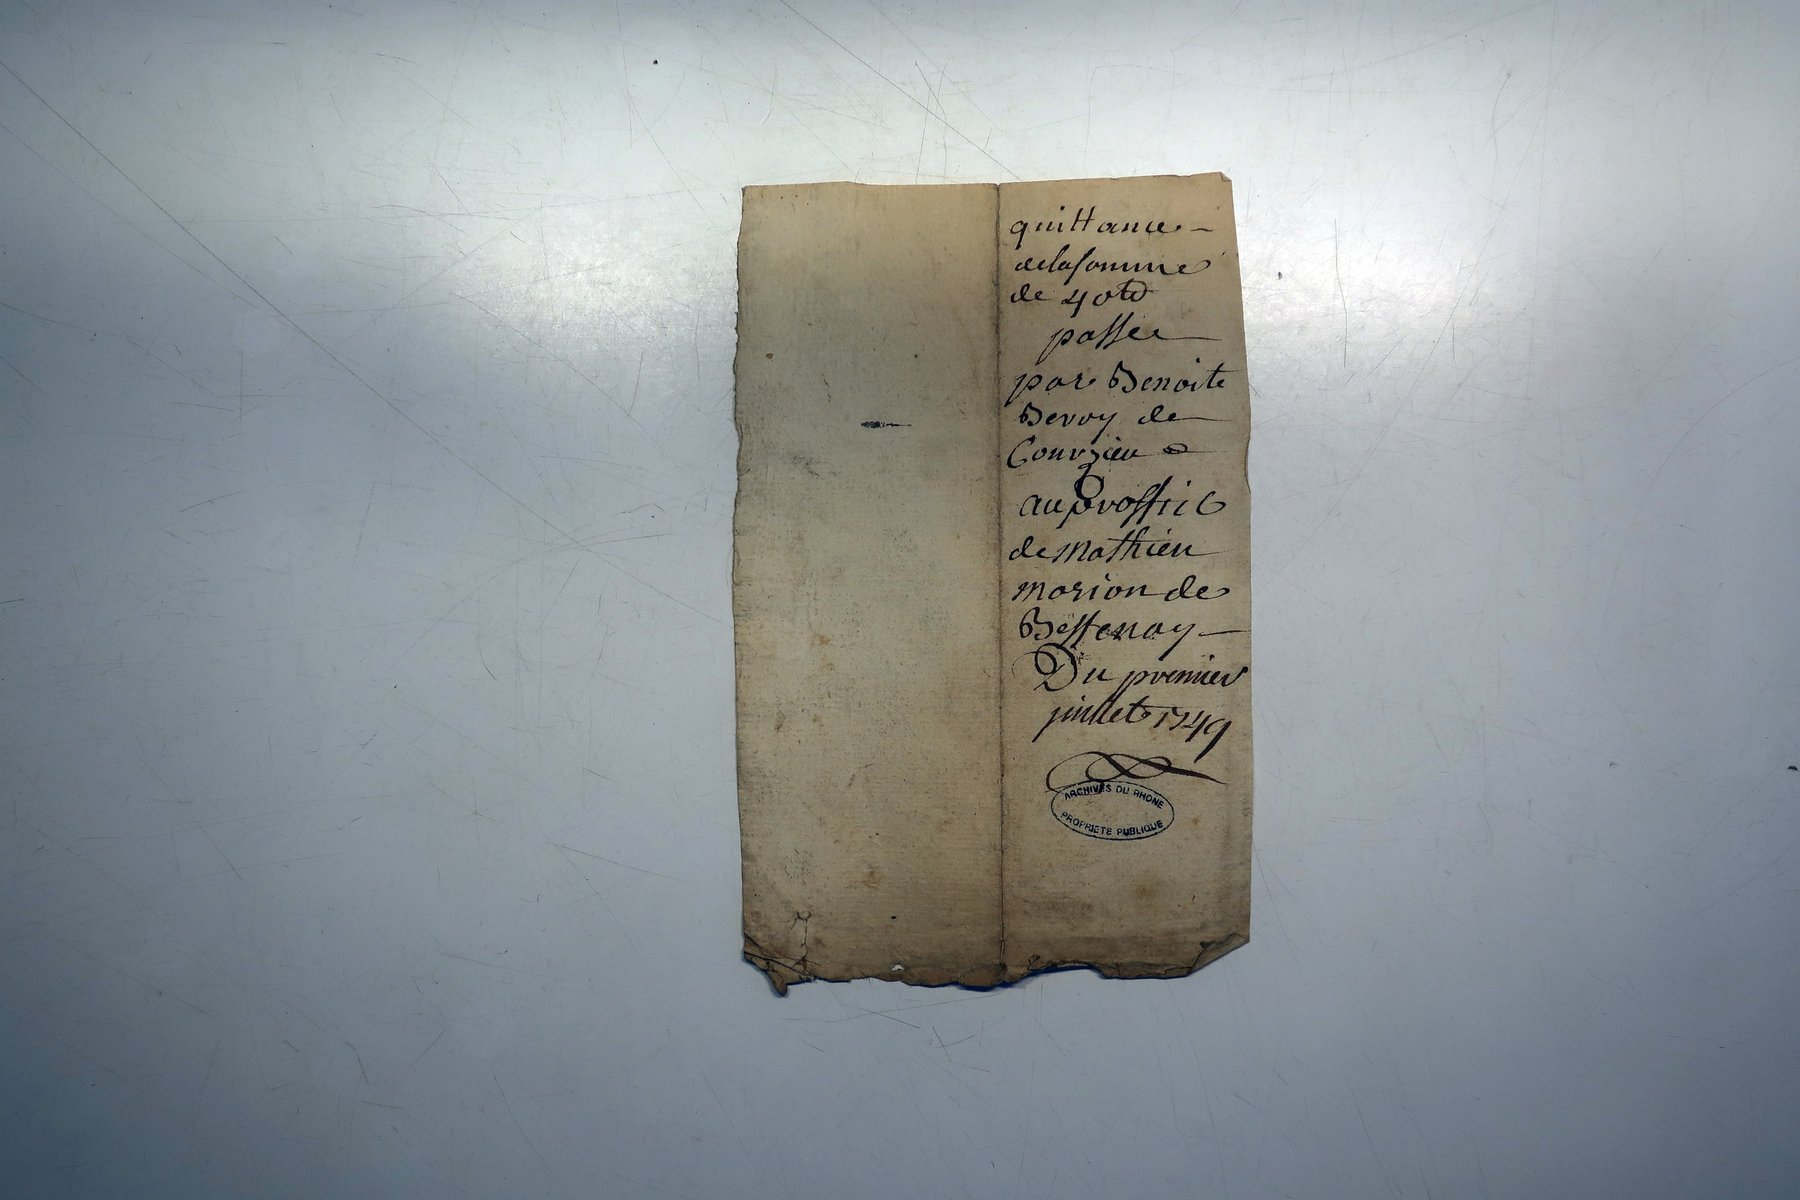 quittance -
de la somme
de 40
passee
par Benoite
de
Courzieu
au proffit
de Mathieu
morion de
Bessenay -
Du premier
juillet 1749
ARCHIVES DU RHONE
PROPRIETE PUBLIQUE